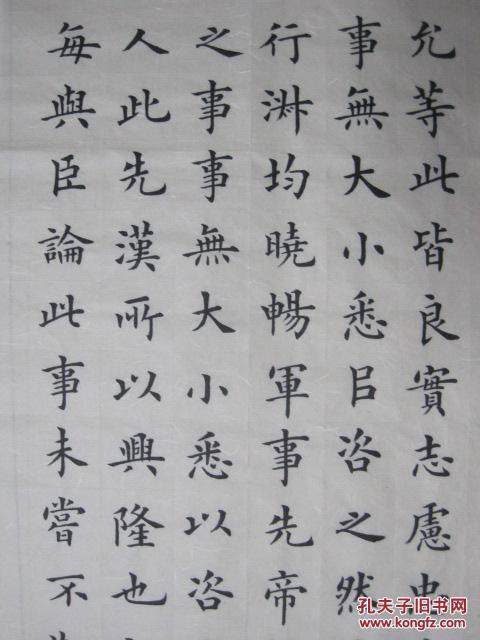 允等此皆良實志慮忠
事無大小悉㠯咨之然
行淑均曉暢軍事先帝
之事事無大小悉以咨
人此先漢所以興隆也
每與臣論此事未嘗不
孔夫子旧书网
KONGFZ.COM